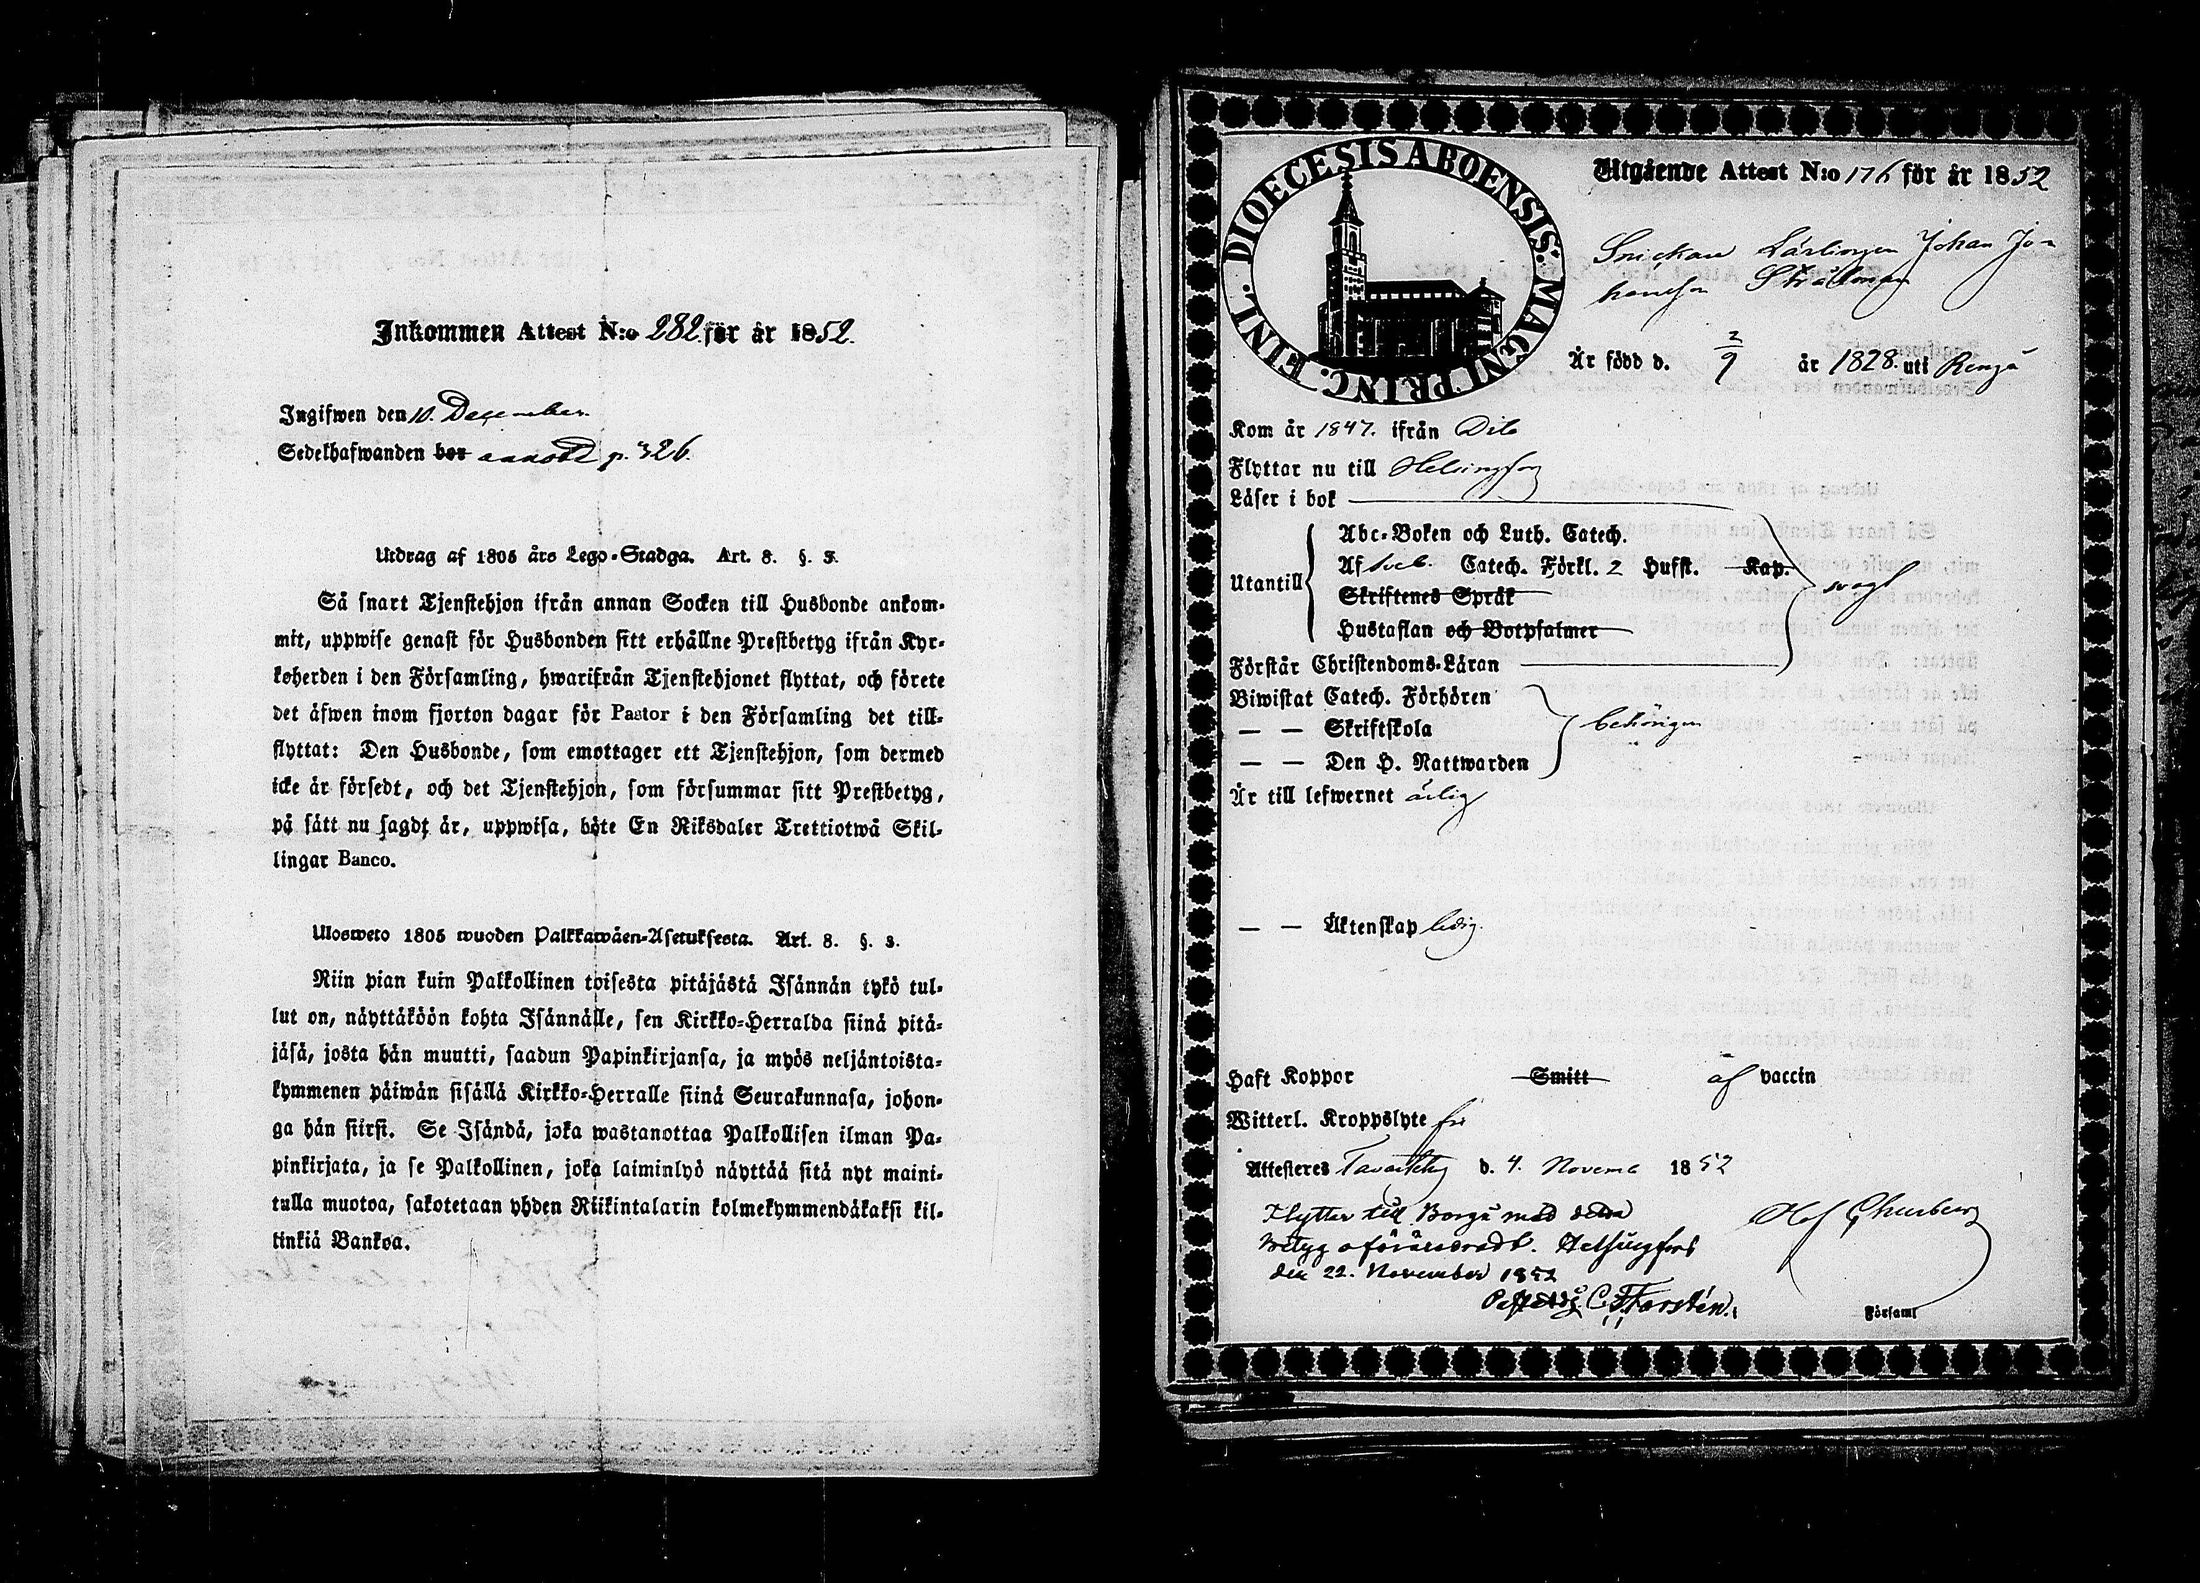 Inkommen Attest N:o 282. för år 1852.
Ingifwen den 10. December
Sedelhafwanden bor annodt p. 326.
Utdrag af 1805 års Lego-Stadga. Art. 8. §. 3.
Så snart Tjenstehjon ifrån annan Socken till Husbonde ankom-
mit, uppwise genast för Husbonden sitt erhållne Prestbetyg ifrån Kyr-
koherden i den Församling, hwarifrån Tjenstehjonet flyttat, och förete
det äfwen inom fjorton dagar för Pastor i den Församling det till-
flyttat: Den Husbonde, som emottager ett Tjenstehjon, som dermed
icke är försedt, och det Tjenstehjon, som försummar sitt Prestbetyg,
på sätt nu sagdt är, uppwisa, böte En Riksdaler Trettiotwå Skil-
lingar Banco.
Ulosweto 1805 wuoden Palkkawäen-Asetuksesta. Art. 8. §. 3.
Niin pian kuin Palkollinen toisesta pitäjästä Isännän tykö tul-
lut on, näyttäköön kohta Isännälle, sen Kirkko-Herralda siinä pitä-
jäsä, josta hän muutti, saadun Papinkirjansa, ja myös neljäntoista-
kymmenen päiwän sisällä Kirkko-Herralle siinä Seurakunnasa, johon-
ga hän siirsi. Se Isändä, joka wastanottaa Palkollisen ilman Pa-
pinkirjata, ja se Palkollinen, joka laiminlyö näyttää sitä nyt maini-
tulla muotoa, sakotetaan yhden Riikintalarin kolmekymmendäkaksi kil-
linkiä Bankoa.
DIOECESIS ABOENSIS: MAGNI PRINC. FINL.
Utgående Attest N:o 176 för år 1852
Snickare Lärlingen Johan Jo-
hansson Strålman
Är född d. 2/9 år 1828. uti Rengo
Kom år 1847. ifrån Dito
Flyttar nu till Helsingfors
Läser i bok
Utantill
Abc-Boken och Luth. Catech.
Af Sveb. Catech. Förkl. 2 Hufst. Kap.
Skriftenes Språk
Hustaflan och Botpsalmer
svagt
Förstår Christendoms-Läran
Biwistat Catech. Förhören
— — Skriftskola
— — Den H. Nattwarden
behörigen
Är till lefwernet ärlig
— — Äktenskap ledig.
Haft Koppor Smitt af vaccin
Witterl. Kroppslyte fri
Attesteres Tavastehus d. 4. Novemb 1852
Flyttar till Borgå med detta
betyg oförändradt. Helsingfors
den 22. November 1852
C. F. Forstén.
Församl